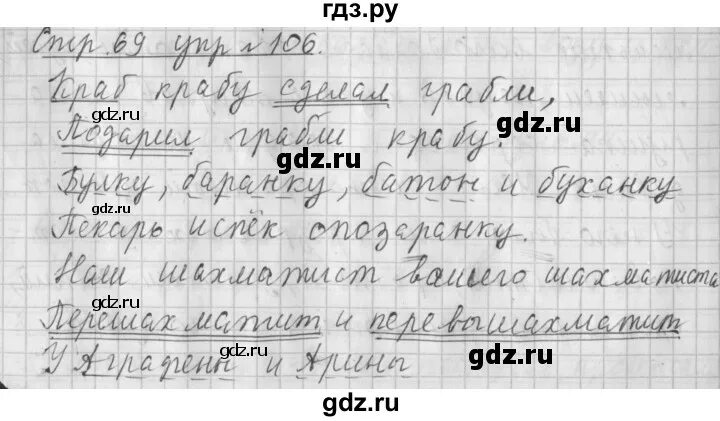 гдз.ру
Стр. 69 упр № 106.
Краб крабу сделал грабли,
Подарил грабли крабу.
Булку, баранку, батон и буханку
Пекарь испёк спозаранку.
Наш шахматист вашего шахматиста
Перешахматит и перевышахматит
У Аграфены и Арины
gdz.ru
gdz.ru
gdz.ru
gdz.ru
gdz.ru
gdz.ru
gdz.ru
gdz.ru
gdz.ru
gdz.ru
gdz.ru